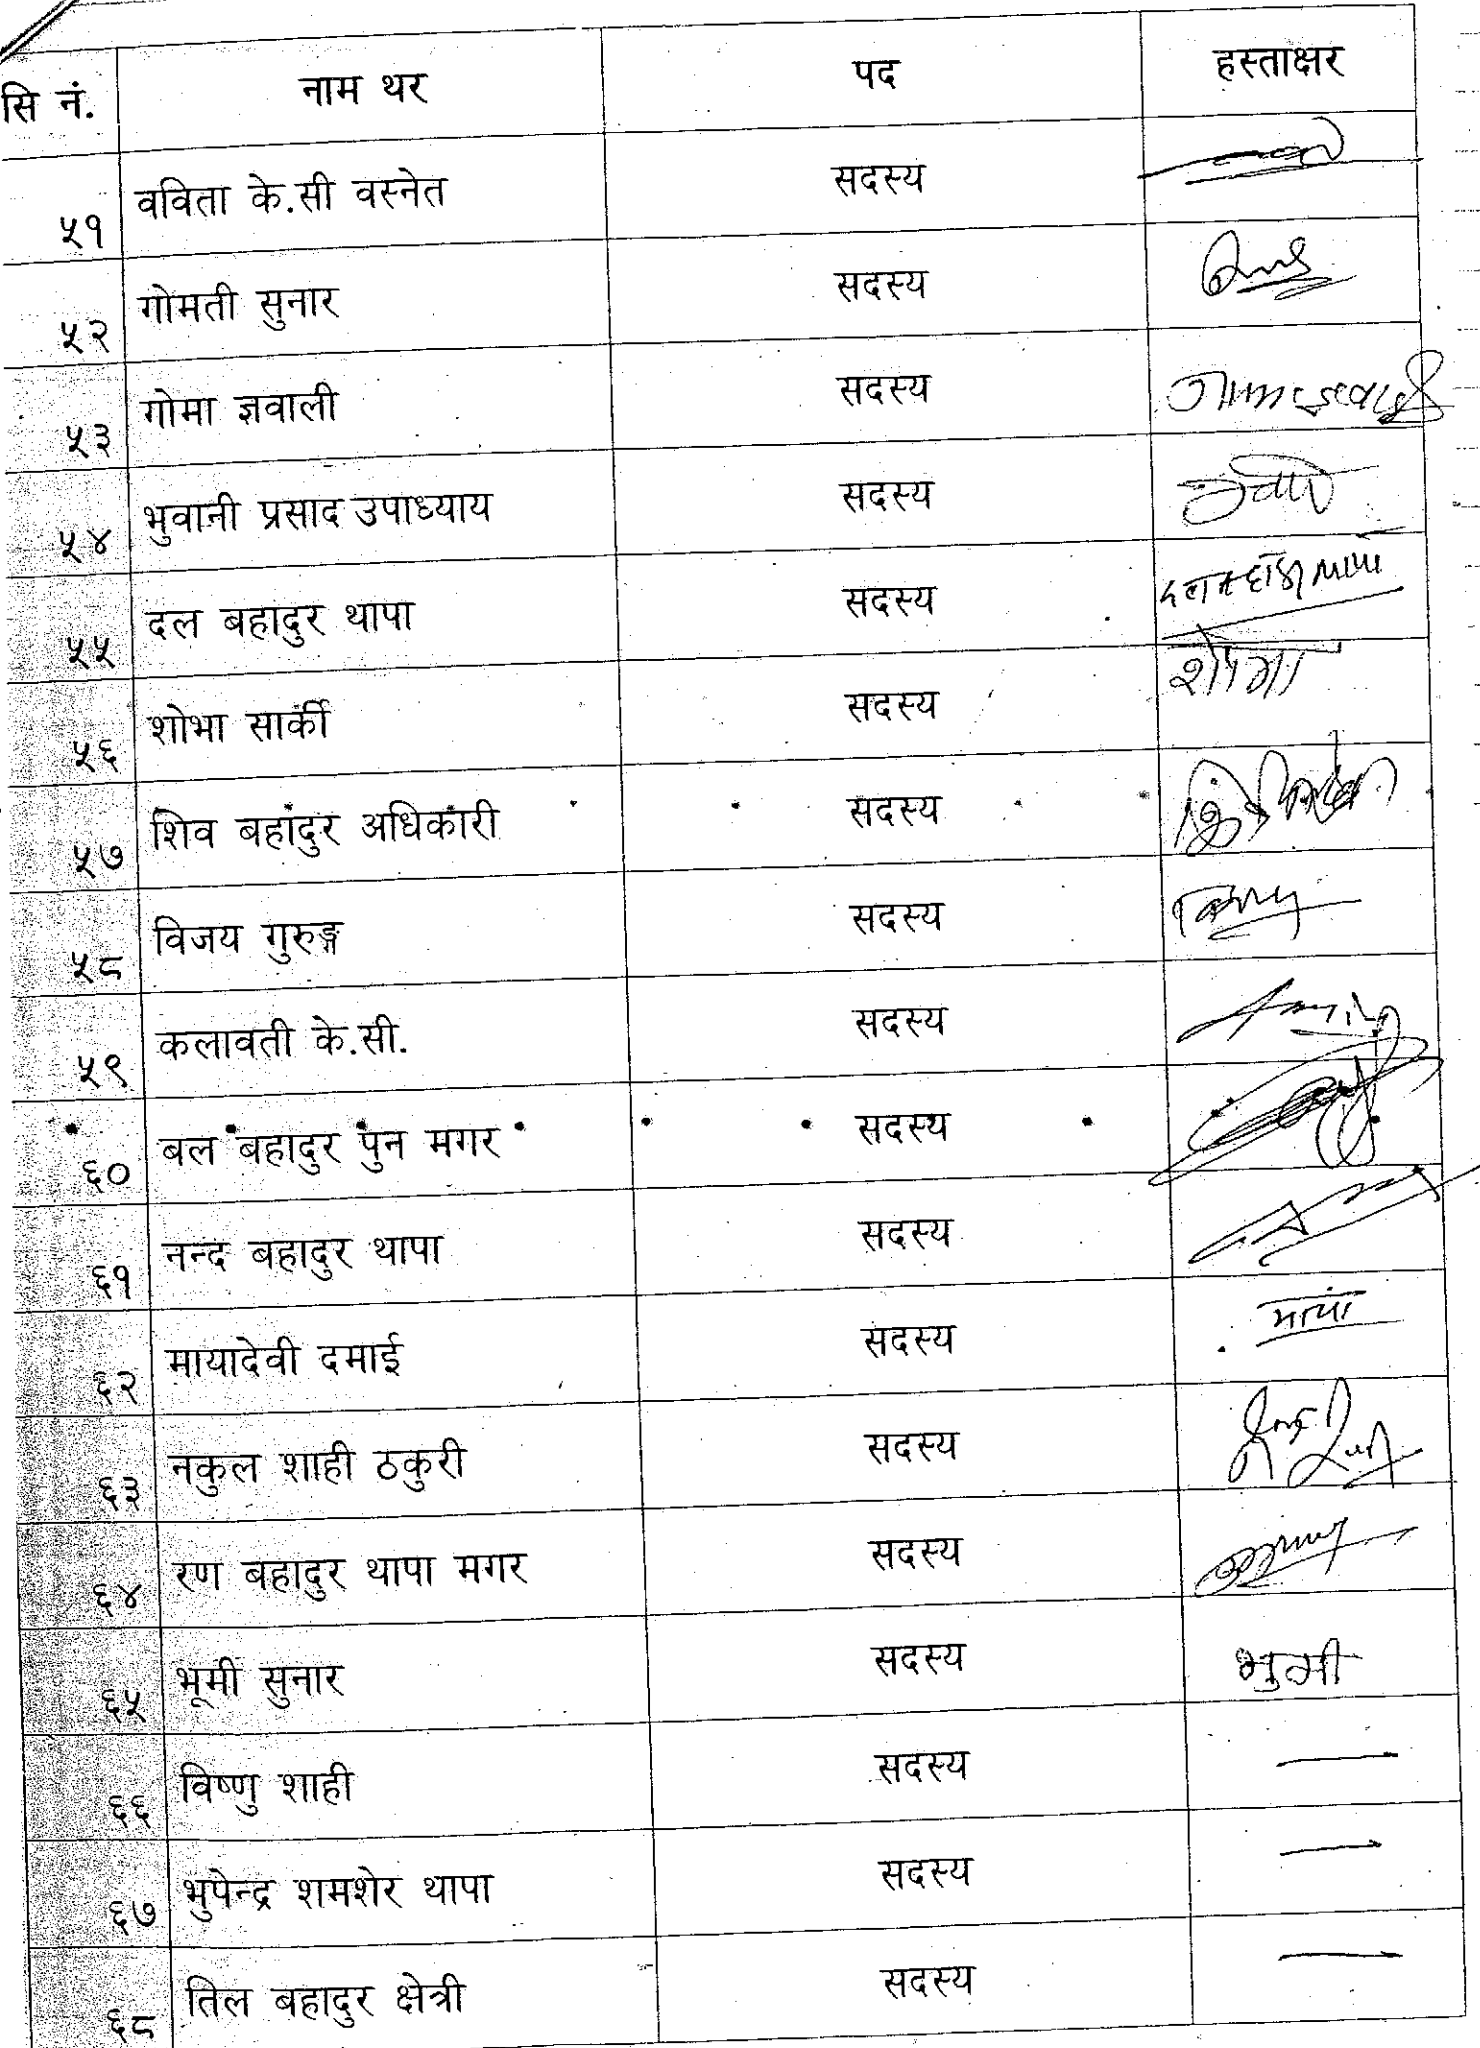 सि नं. नाम थर पद हस्ताक्षर
५१ वविता के.सी वस्नेत सदस्य
५२ गोमती सुनार सदस्य
५३ गोमा ज्ञवाली सदस्य
५४ भुवानी प्रसाद उपाध्याय सदस्य
५५ दल बहादुर थापा सदस्य
५६ शोभा सार्की सदस्य
५७ शिव बहादुर अधिकारी सदस्य
५८ विजय गुरुङ्ग सदस्य
५९ कलावती के.सी. सदस्य
६० बल बहादुर पुन मगर सदस्य
६१ नन्द बहादुर थापा सदस्य
६२ मायादेवी दमाई सदस्य माया
६३ नकुल शाही ठकुरी सदस्य
६४ रण बहादुर थापा मगर सदस्य
६५ भूमी सुनार सदस्य भुमी
६६ विष्णु शाही सदस्य —
६७ भुपेन्द्र शमशेर थापा सदस्य —
६८ तिल बहादुर क्षेत्री सदस्य —